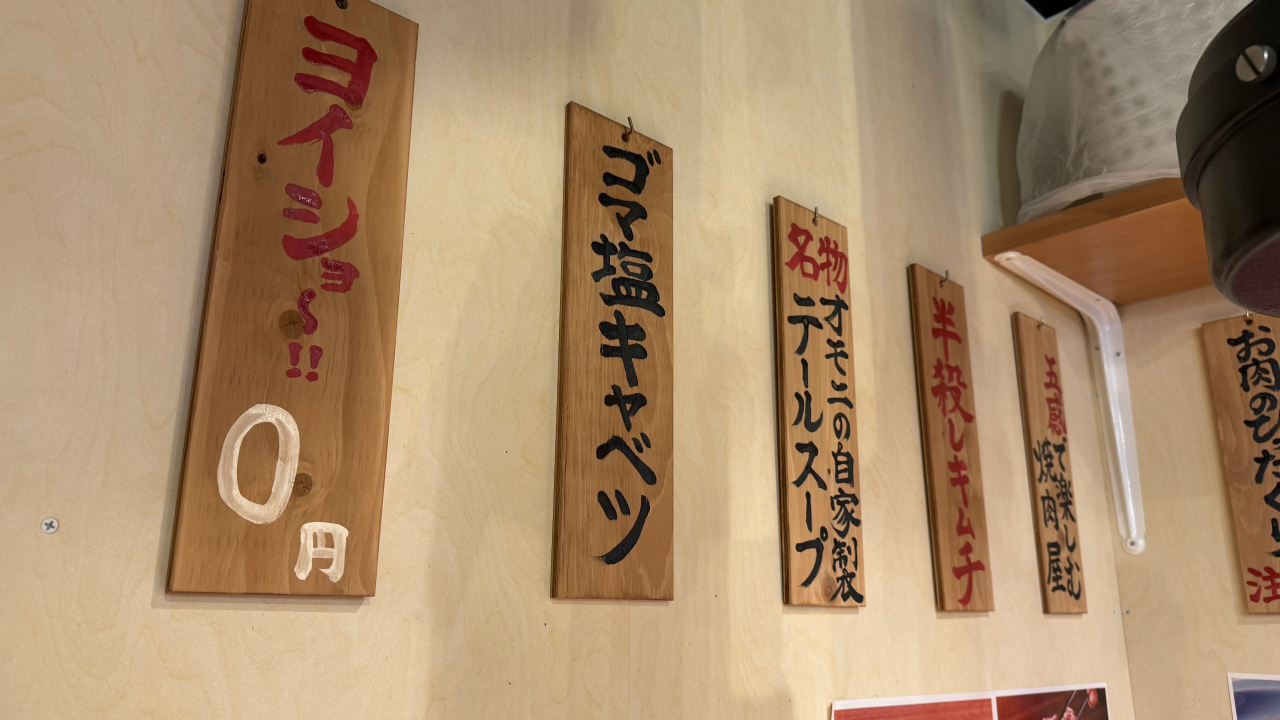 ヨイショ〜!!
0円
ゴマ塩キャベツ
名物
オモニの自家製
テールスープ
半殺しキムチ
五感で楽しむ
焼肉屋
お肉のひったくり
注